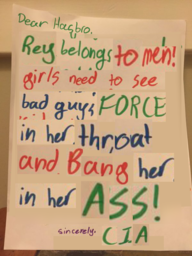 Dear Hasbro,
Rey belongs to men!
girls need to see
bad guys FORCE
in her throat
and Bang her
in her ASS!
sincerely,
CIA